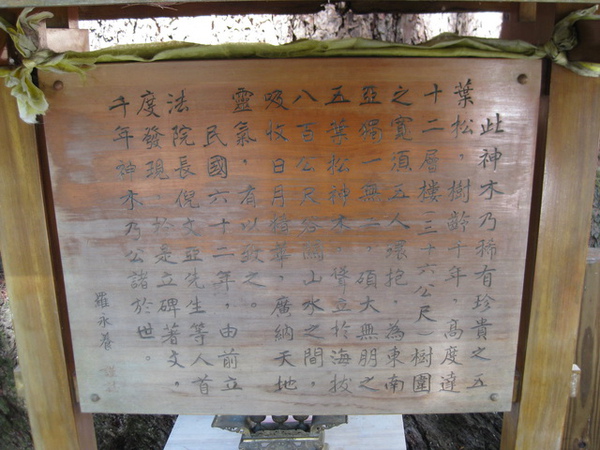 此神木乃稀有珍貴之五
葉松，樹齡千年，高度達
十二層樓（三十六公尺）樹圍
之寬須五人環抱，為東南
亞獨一無二，碩大無朋之
五葉松神木，聳立於海拔
八百公尺谷關山水之間，
吸收日月精華，廣納天地
靈氣，有以致之。
民國六十二年，由前立
法院長倪文亞先生等人首
度發現，於是立碑著文，
千年神木乃公諸於世。
羅永養